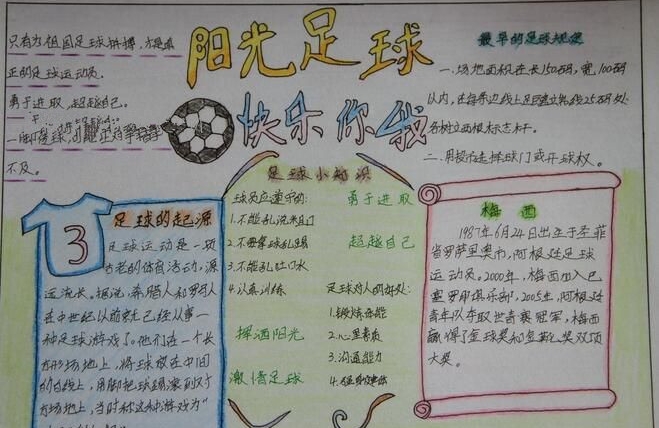 阳光足球
快乐你我
只有为祖国足球拼搏,才是真
正的足球运动员。
勇于进取,超越自己。
不及。
最早的足球规定
一.场地面积在长150码,宽100码
以内,在每条边线上
各树立两根标志杆。
二.用投币选择球门或开球权。
足球的起源
3
足球运动是一项
古老的体育活动,源
远流长。据说,希腊人和罗马人
在中世纪以前就已经从事一
种足球游戏了。他们在一个长
方形场地上,将球放在中间
的白线上,用脚把球踢滚到对
方场地上,当时称这种游戏为“
足球小知识
球员应遵守的:
1.不能乱
2.不
3.不能乱吐口水
4.认真训练
勇于进取
超越自己
挥洒阳光
激情足球
足球对人的好处:
1.锻炼体能
2.心里素质
3.沟通能力
4.
梅西
1987年6月24日出生于圣菲
省罗萨里奥市,阿根廷足球
运动员。2000年,梅西加入巴
塞罗那俱乐部,2005年,阿根廷
青年队夺取世青赛冠军,梅西
赢得了金球奖和金靴奖双项
大奖。